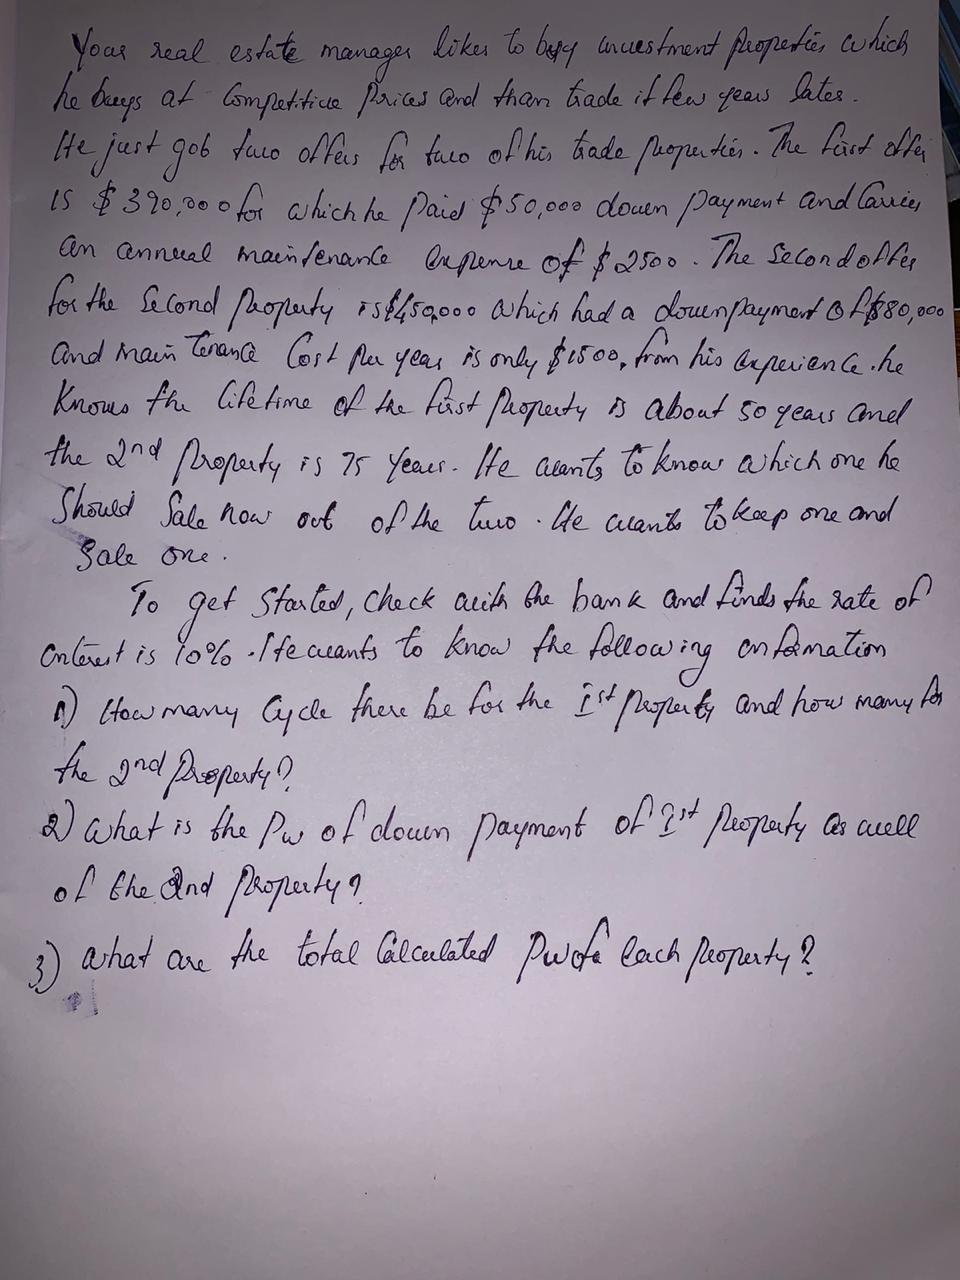 Your real estate manager likes to buy investment properties which
he buys at Competitive Prices and than trade it few years later.
He just got two offers for two of his trade properties. The first offer
is $390,000 for which he Paid $50,000 down payment and Carries
an annual maintenance expense of $2500. The Second offer
for the Second Property is $450,000 which had a downpayment of $80,000
and main Tenance Cost Per year is only $1500, from his experience he
Knows the lifetime of the first Property is about 50 years and
the 2nd Property is 75 years. He wants to know which one he
Should Sale now out of the two. He wants to keep one and
Sale one.
To get Started, check with the bank and finds the rate of
interest is 10%. He wants to know the following information
1) How many Cycle there be for the Ist Property and how many for
the 2nd Property?
2) What is the Pw of down payment of Ist Property as well
of the 2nd Property?
3) What are the total Calculated Pw of each property?